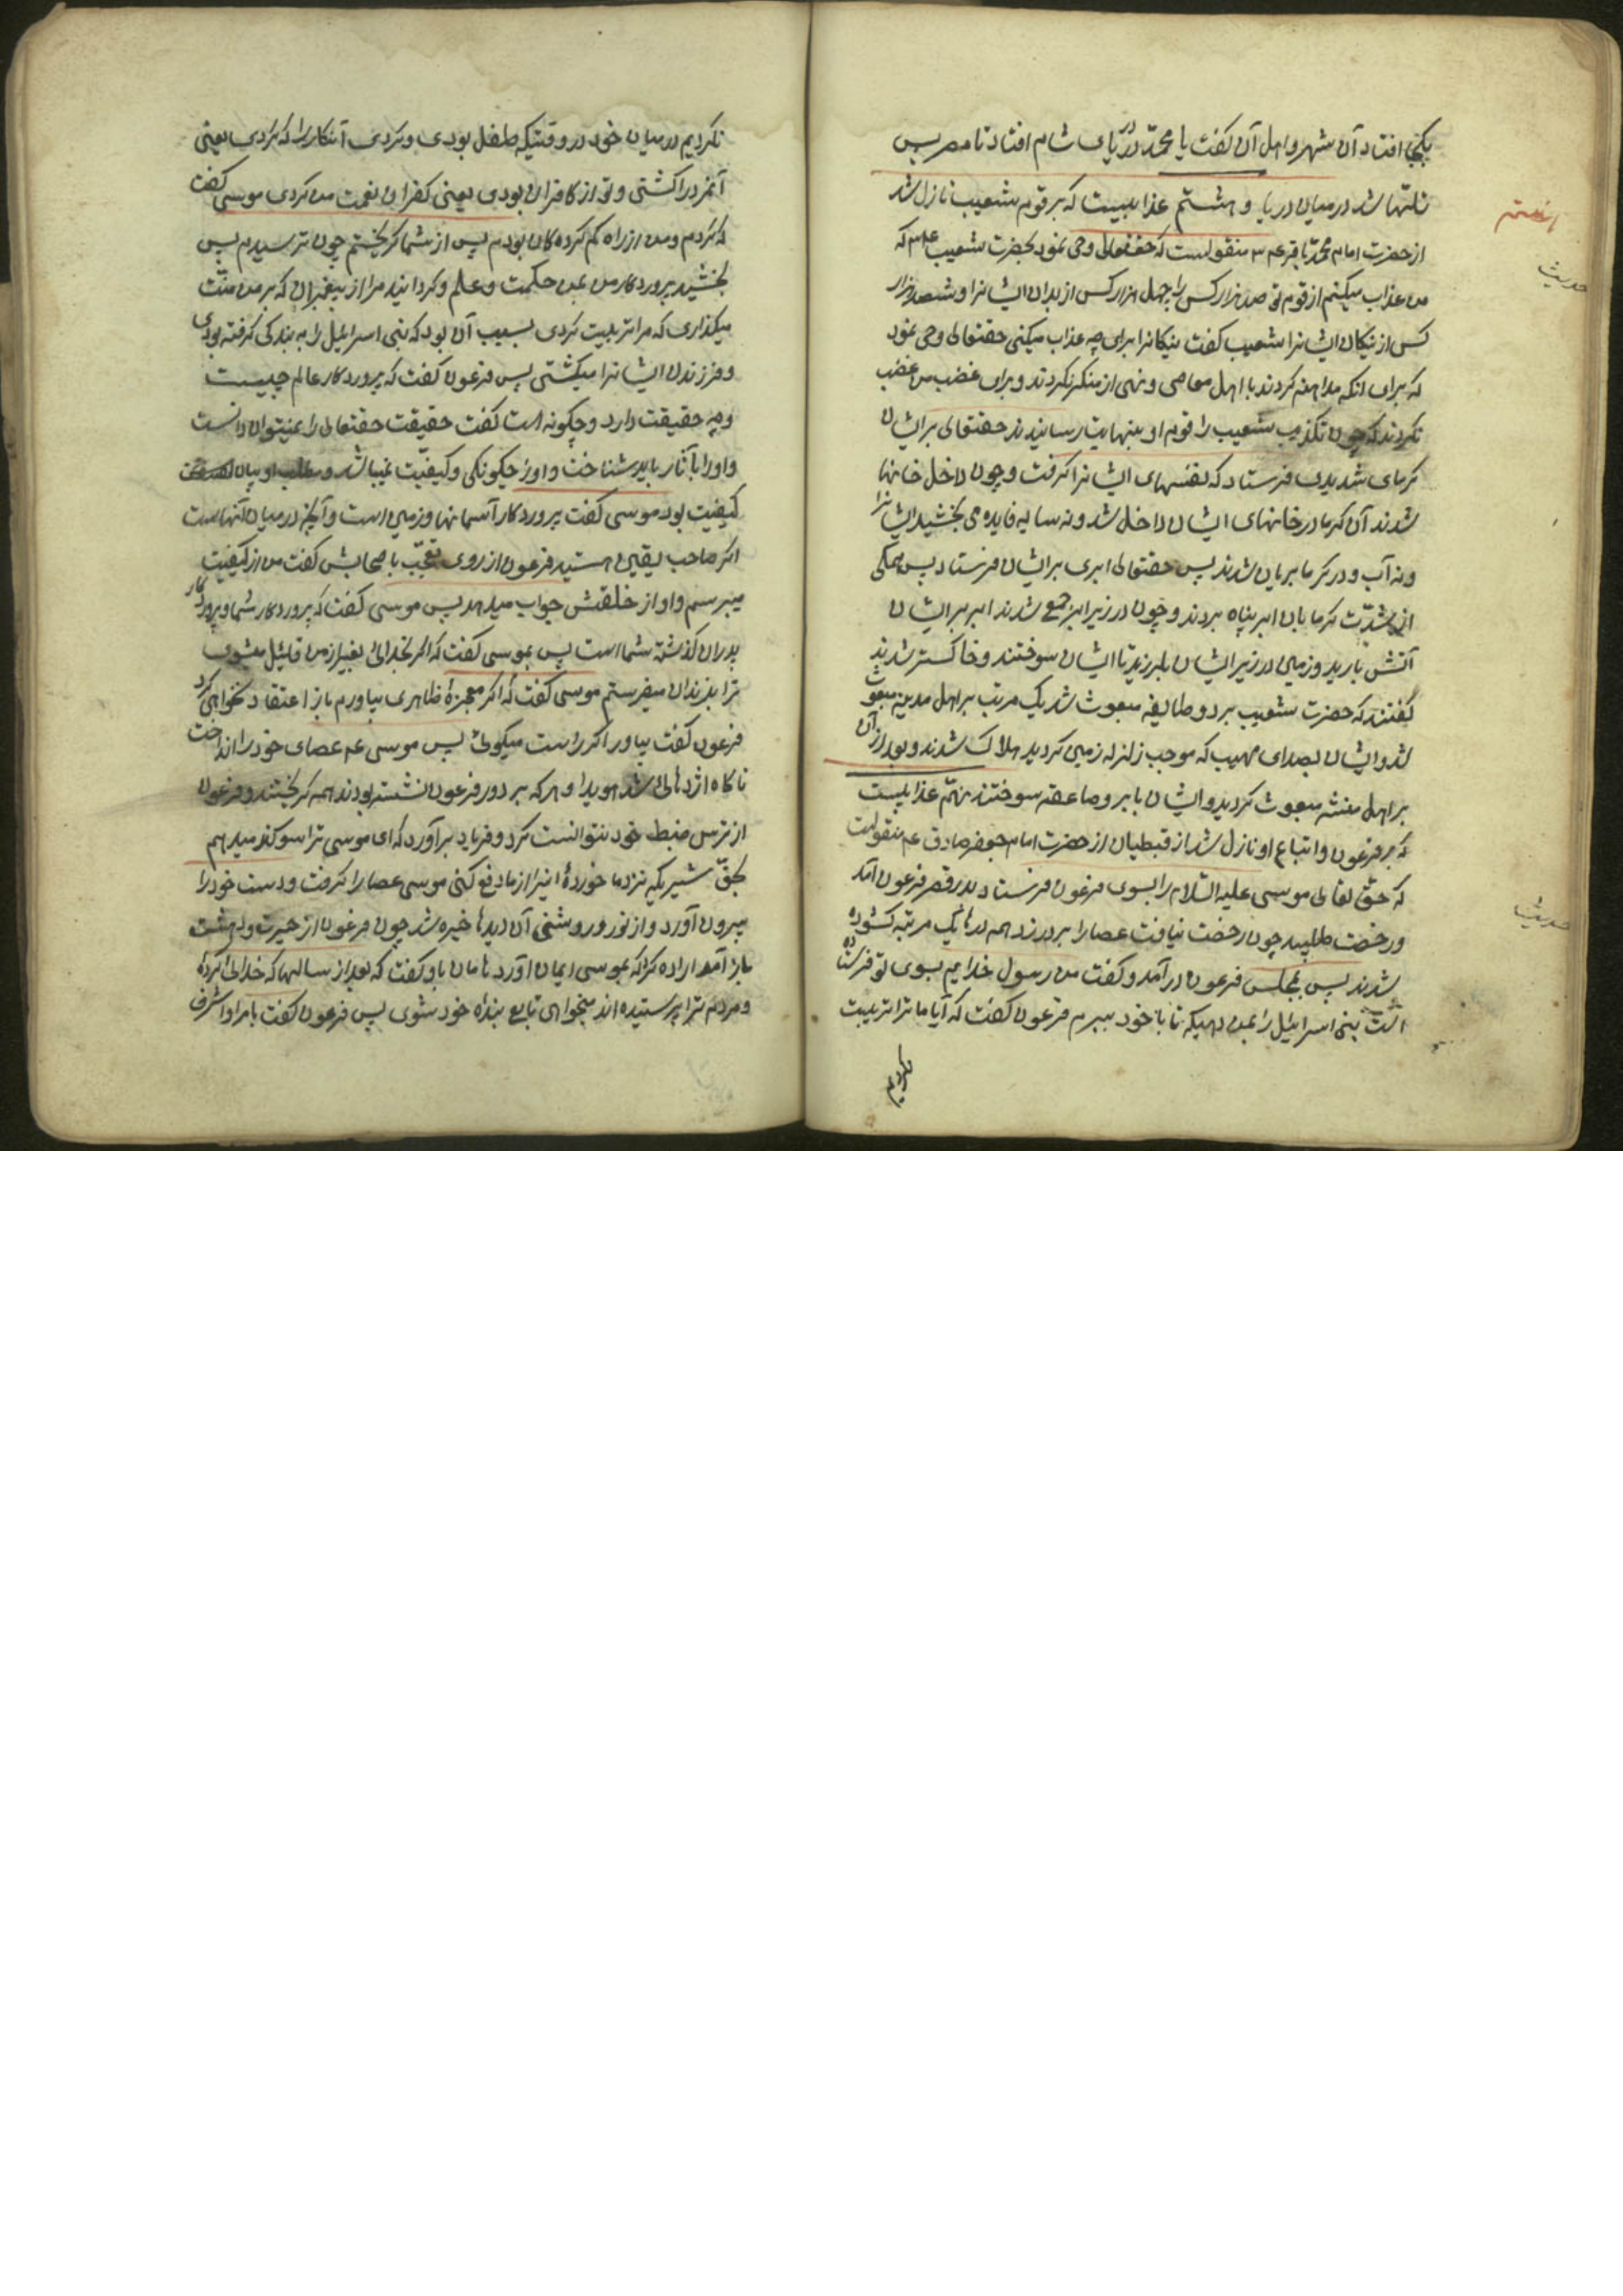 بکجا افتاد آن شهر و اهل آن گفت یا محمّد در دریای شام افتاد تا مصر پس
تلتها شد در میان دریا و هشتم عذابیست که بر قوم شعیب نازل شد
از حضرت امام محمّد باقر عم منقولست که حقتعالی وحی نمود بحضرت شعیب عم که
من عذاب میکنم از قوم تو صد هزار کس را چهل هزار کس از بدان ایشانرا و شصد هزار
کس از نیکان ایشانرا شعیب گفت نیکانرا برای چه عذاب میکنی حقتعالی وحی نمود
که برای انکه مداهنه کردند با اهل معاصی و نهی از منکر نکردند و برای غضب من غضب
نکردند که چون تکذیب شعیب را قوم او بنهایت رسانیدند حقتعالی بر ایشان
گرمای شدیدی فرستاد که نفسهای ایشانرا گرفت و چون داخل خانها
شدند آن گرما در خانهای ایشان داخل شد و نه سایه فایده می بخشید ایشانرا
و نه آب و در گرما بریان شدند پس حقتعالی ابری بر ایشان فرستاد پس همکی
از شدّت گرما بان ابر پناه بردند و چون در زیر ابر جمع شدند ابر بر ایشان
آتش بارید و زمین در زیر ایشان بلرزید تا ایشان سوختند و خاکستر شدند
گفتند که حضرت شعیب بر دو طایفه مبعوث شد یک مرتب بر اهل مدین مبعوث
شد و ایشان بصدای مهیب که موجب زلزله زمین گردید هلاک شدند و بعد از آن
بر اهل منشه مبعوث گردید و ایشان بابر و صاعقه سوختند نهّم عذابیست
که بر فرعون و اتباع او نازل شد از قبطیان از حضرت امام جعفر صادق عم منقولست
که حقّ تعالی موسی علیه السّلام را بسوی فرعون فرستاد بدر قصر فرعون آمد
و رخصت طلبید چون رخصت نیافت عصا را بر در زد همه درها یک مرتبه گشوده
شدند پس بمجلس فرعون درآمد و گفت من رسول خدایم بسوی تو فرستاده
است بنی اسرائیل را بمن دهیکه تا با خود ببرم فرعون گفت که آیا ما ترا تربیت
نکردیم
حدیث
حدیث
نکردیم در میان خود در وقتیکه طفل بودی و کردی آنکار را که کردی یعنی
آنمرد را کشتی و تو از کافران بودی یعنی کفران نعمت من کردی موسی گفت
که کردم و من از راه کم کرده کان بودم پس از شما کریختم چون ترسیدم پس
بخشید پروردکار من بمن حکمت و علم و کردانید مرا از پیغمبران که بر من منّت
میکذاری که مرا تربیت کردی بسبب آن بود که بنی اسرائیل را به بندکی گرفته بودی
و فرزندان ایشانرا میکشتی پس فرعون گفت که پروردکار عالم چیست
و چه حقیقت دارد و چکونه است گفت حقیقت حقتعالی را نمیتوان دانست
و او را بآثار باید شناخت و او را چکونکی و کیفیّت نمیباشد و مطلب او بیان
کیفیت بود موسی گفت پروردکار آسمانها و زمین است و آنچه در میان آنهاست
اکر صاحب یقین هستید فرعون از روی تعجّب باصحابش گفت من از کیفیت
میپرسم و او از خلقتش جواب میدهد پس موسی گفت که پروردکار شما و پروردکار
پدران گذشته شما است پس بموسی گفت که اکر بخدائی بغیر از من قائل میشوی
ترا بزندان میفرستم موسی گفت که اکر معجزهٔ ظاهری بیاورم باز اعتقاد نخواهی کرد
فرعون گفت بیاور اکر راست میکوئی پس موسی عم عصای خود را انداخت
ناکاه اژدهائی شد هویدا و هر که بر دور فرعون نشسته بودند همه کریختند و فرعون
از ترس ضبط خود نتوانست کرد و فریاد برآورد که ای موسی ترا سوکند میدهم
بحقّ شیریکه نزد ما خوردهٔ اینرا از ما دفع کنی موسی عصا را گرفت و دست خود را
بیرون آورد و از نور و روشنی آن دیدها خیره شد چون فرعون از حیرت و دهشت
باز آمد اراده کرد که بموسی ایمان آورد هامان باو گفت که بعد از سالها که خدائی کردهٔ
و مردم ترا پرستیده اند میخواهی تابع بنده خود شوی پس فرعون گفت بامرا و اشراف